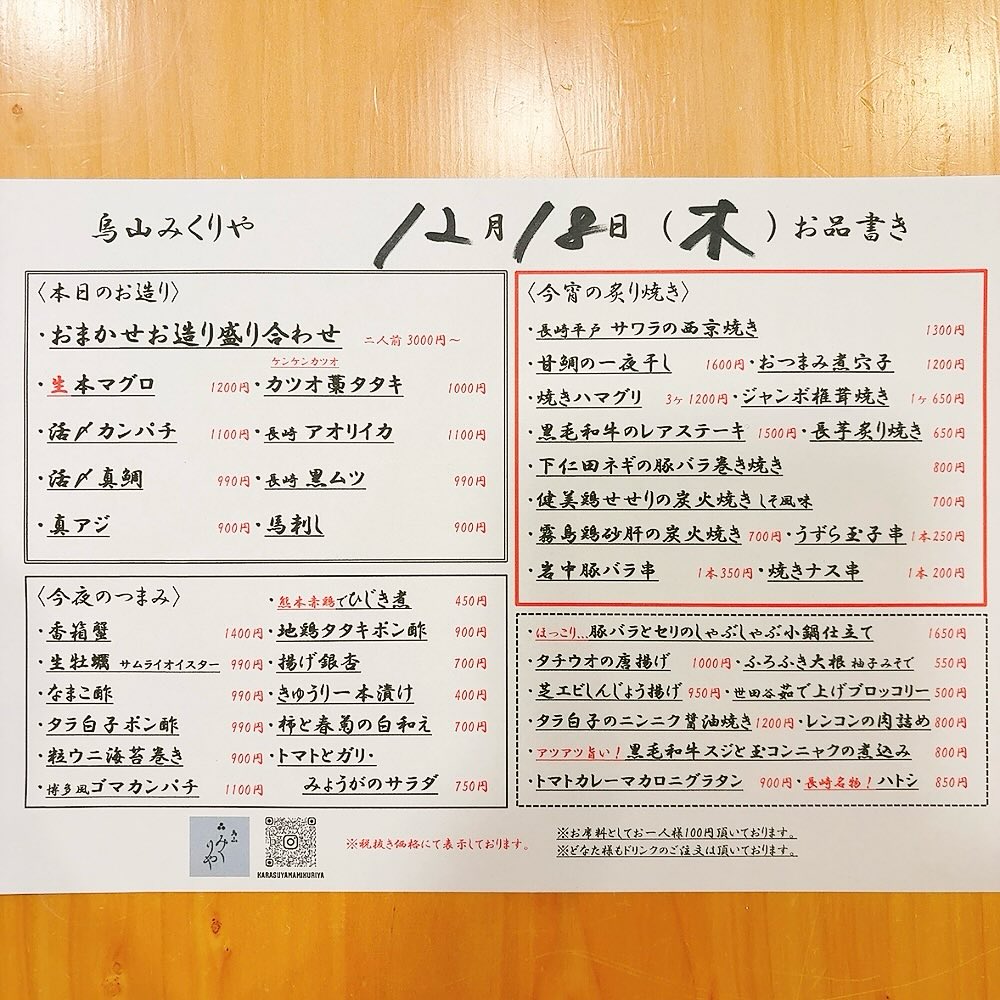 烏山みくりや 12月18日(木)お品書き
〈本日のお造り〉
・おまかせお造り盛り合わせ 二人前 3000円～
ケンケンカツオ
・生本マグロ 1200円・カツオ藁タタキ 1000円
・活〆カンパチ 1100円・長崎 アオリイカ 1100円
・活〆真鯛 990円・長崎 黒ムツ 990円
・真アジ 900円・馬刺し 900円
〈今夜のつまみ〉 ・熊本赤鶏でひじき煮 450円
・香箱蟹 1400円・地鶏タタキポン酢 900円
・生牡蠣 サムライオイスター 990円・揚げ銀杏 700円
・なまこ酢 990円・きゅうり一本漬け 400円
・タラ白子ポン酢 990円・柿と春菊の白和え 700円
・粒ウニ海苔巻き 900円・トマトとガリ・
・博多風ゴマカンパチ 1100円 みょうがのサラダ 750円
〈今宵の炙り焼き〉
・長崎平戸 サワラの西京焼き 1300円
・甘鯛の一夜干し 1600円・おつまみ煮穴子 1200円
・焼きハマグリ 3ヶ1200円・ジャンボ椎茸焼き 1ヶ650円
・黒毛和牛のレアステーキ 1500円・長芋炙り焼き 650円
・下仁田ネギの豚バラ巻き焼き 800円
・健美鶏せせりの炭火焼き しそ風味 700円
・霧島鶏砂肝の炭火焼き 700円・うずら玉子串 1本250円
・岩中豚バラ串 1本350円・焼きナス串 1本200円
・ほっこり...豚バラとセリのしゃぶしゃぶ小鍋仕立て 1650円
・タチウオの唐揚げ 1000円・ふろふき大根 柚子みそで 550円
・芝エビしんじょう揚げ 950円・世田谷茹で上げブロッコリー 500円
・タラ白子のニンニク醤油焼き 1200円・レンコンの肉詰め 800円
・アツアツ旨い！黒毛和牛スジと玉コンニャクの煮込み 800円
・トマトカレーマカロニグラタン 900円・長崎名物！ハトシ 850円
みくりや
KARASUYAMAMIKURIYA
※税抜き価格にて表示しております。
※お席料としてお一人様100円頂いております。
※どなた様もドリンクのご注文は頂いております。